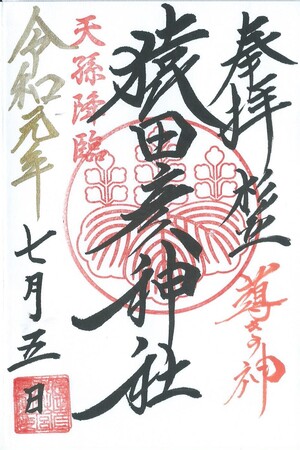 奉拝 杉並
導きの神
猿田彦神社
天孫降臨
令和元年
七月五日